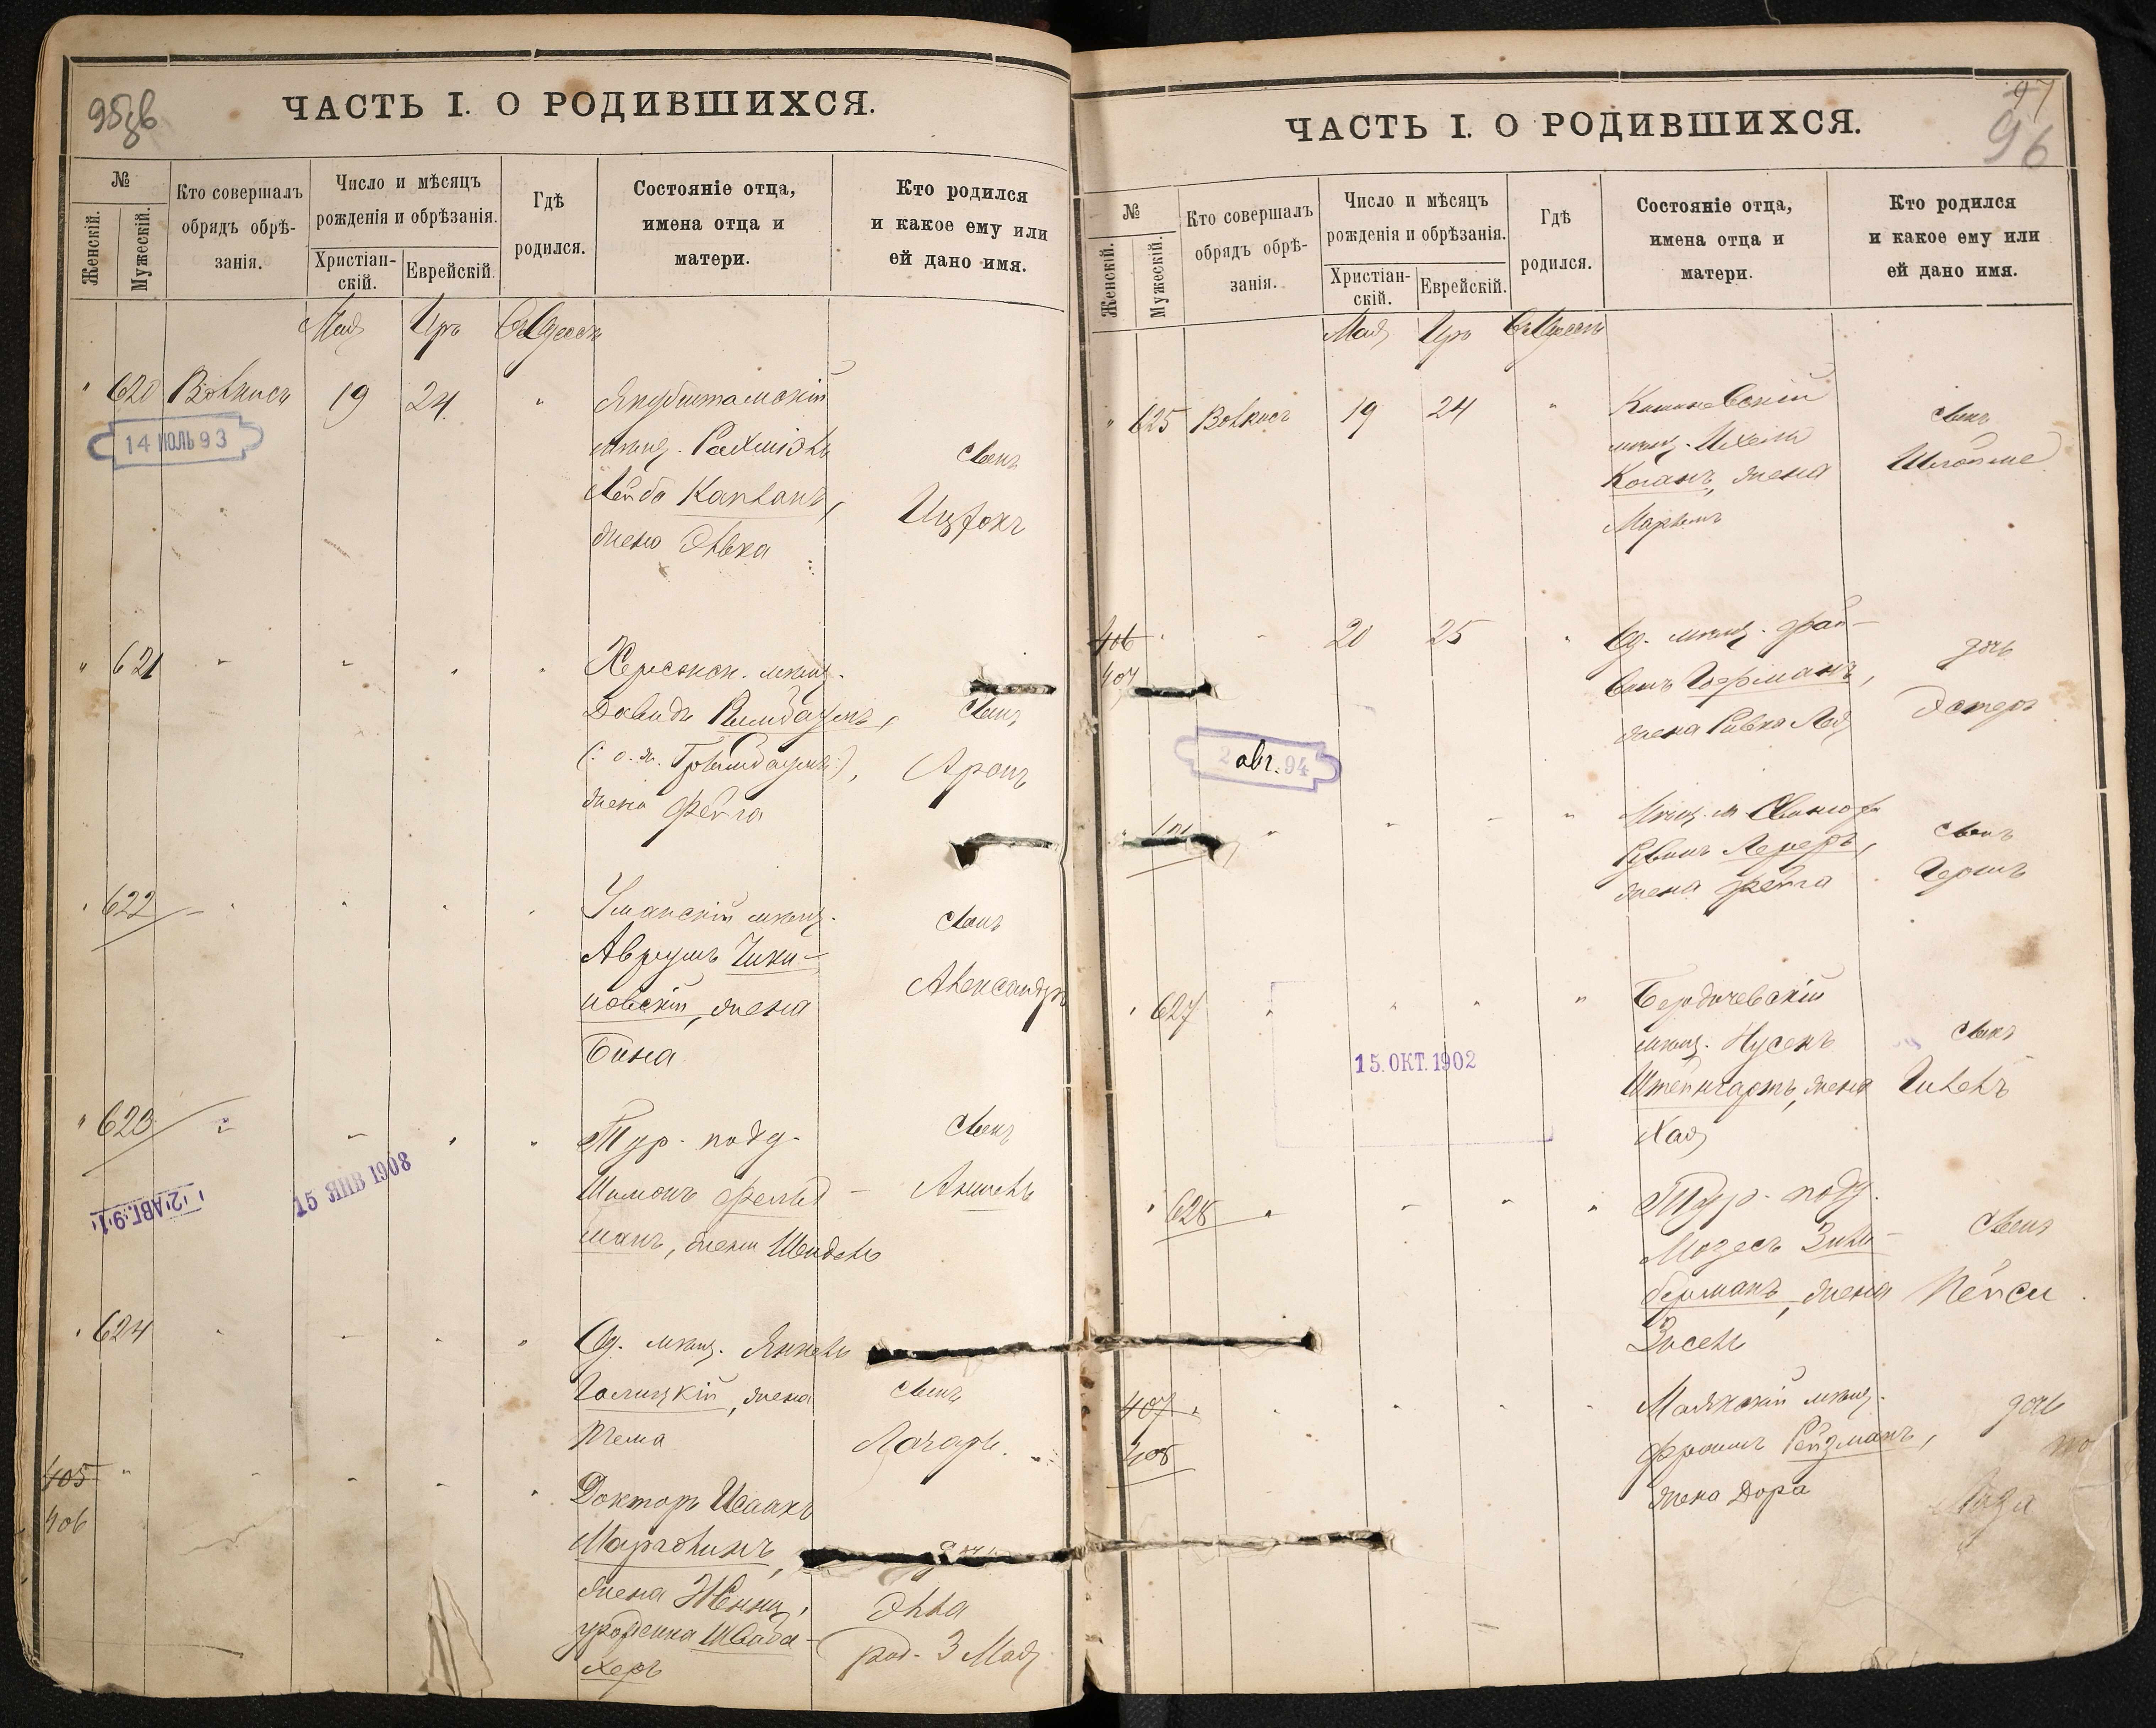 95об
ЧАСТЬ I. О РОДИВШИХСЯ.
№
Женскій.
Мужескій.
Кто совершалъ
обрядъ обрѣ-
занія.
Число и мѣсяцъ
рожденія и обрѣзанія.
Христіан-
скій.
Еврейскій.
Гдѣ
родился.
Состояніе отца,
имена отца и
матери.
Кто родился
и какое ему или
ей дано имя.
Мая Іръ Въ Одессѣ
" 620 19 24 "
14 ІЮЛЬ 93
мѣщ. Рахміэль
Лейба Капланъ,
жена Элька
сынъ
Ицхокъ
" 621 " " " "
Херсонск. мѣщ.
Давидъ
жена Фейга
сынъ
Аронъ
622
Уманскій мѣщ.
Аврумъ Чики-
новскій, жена
Бина
сынъ
Александръ
" 623
2 АВГ. 91
15 ЯНВ 1908
Тур. подд.
Шимонъ Фельд-
манъ, жена Шейдель
сынъ
Аншель
624
Од. мѣщ. Янкель
Голицкій, жена
Тема
сынъ
Лазарь
405
406
Докторъ Исаакъ
Марголинъ,
жена Женни,
урожденна Шваба-
херъ
дочь
Элла
род. 3 Мая
97
96
ЧАСТЬ I. О РОДИВШИХСЯ.
№
Женскій.
Мужескій.
Кто совершалъ
обрядъ обрѣ-
занія.
Число и мѣсяцъ
рожденія и обрѣзанія.
Христіан-
скій.
Еврейскій.
Гдѣ
родился.
Состояніе отца,
имена отца и
матери.
Кто родился
и какое ему или
ей дано имя.
Мая Іръ Въ Одессѣ
" 625 19 24 "
мѣщ. Ихель
Коганъ, жена
Марьемъ
сынъ
Шлойме
406
407
20 25 "
Од. мѣщ. Фай-
вишъ Германъ,
жена Ривка Лея
дочь
Эстеръ
2 авг. 94
Рувинъ Лереръ,
жена Фейга
сынъ
Гершъ
627
15. ОКТ. 1902
Бердичевскій
мѣщ. Нусенъ
Штейнгартъ, жена
Хая
сынъ
Гилель
628
Тур. подд.
Мозесъ Зиль-
берманъ, жена
Зисель
сынъ
Пейси
407
408
Маякскій мѣщ.
Фроимъ Рейзманъ,
жена Дора
дочь
Роза